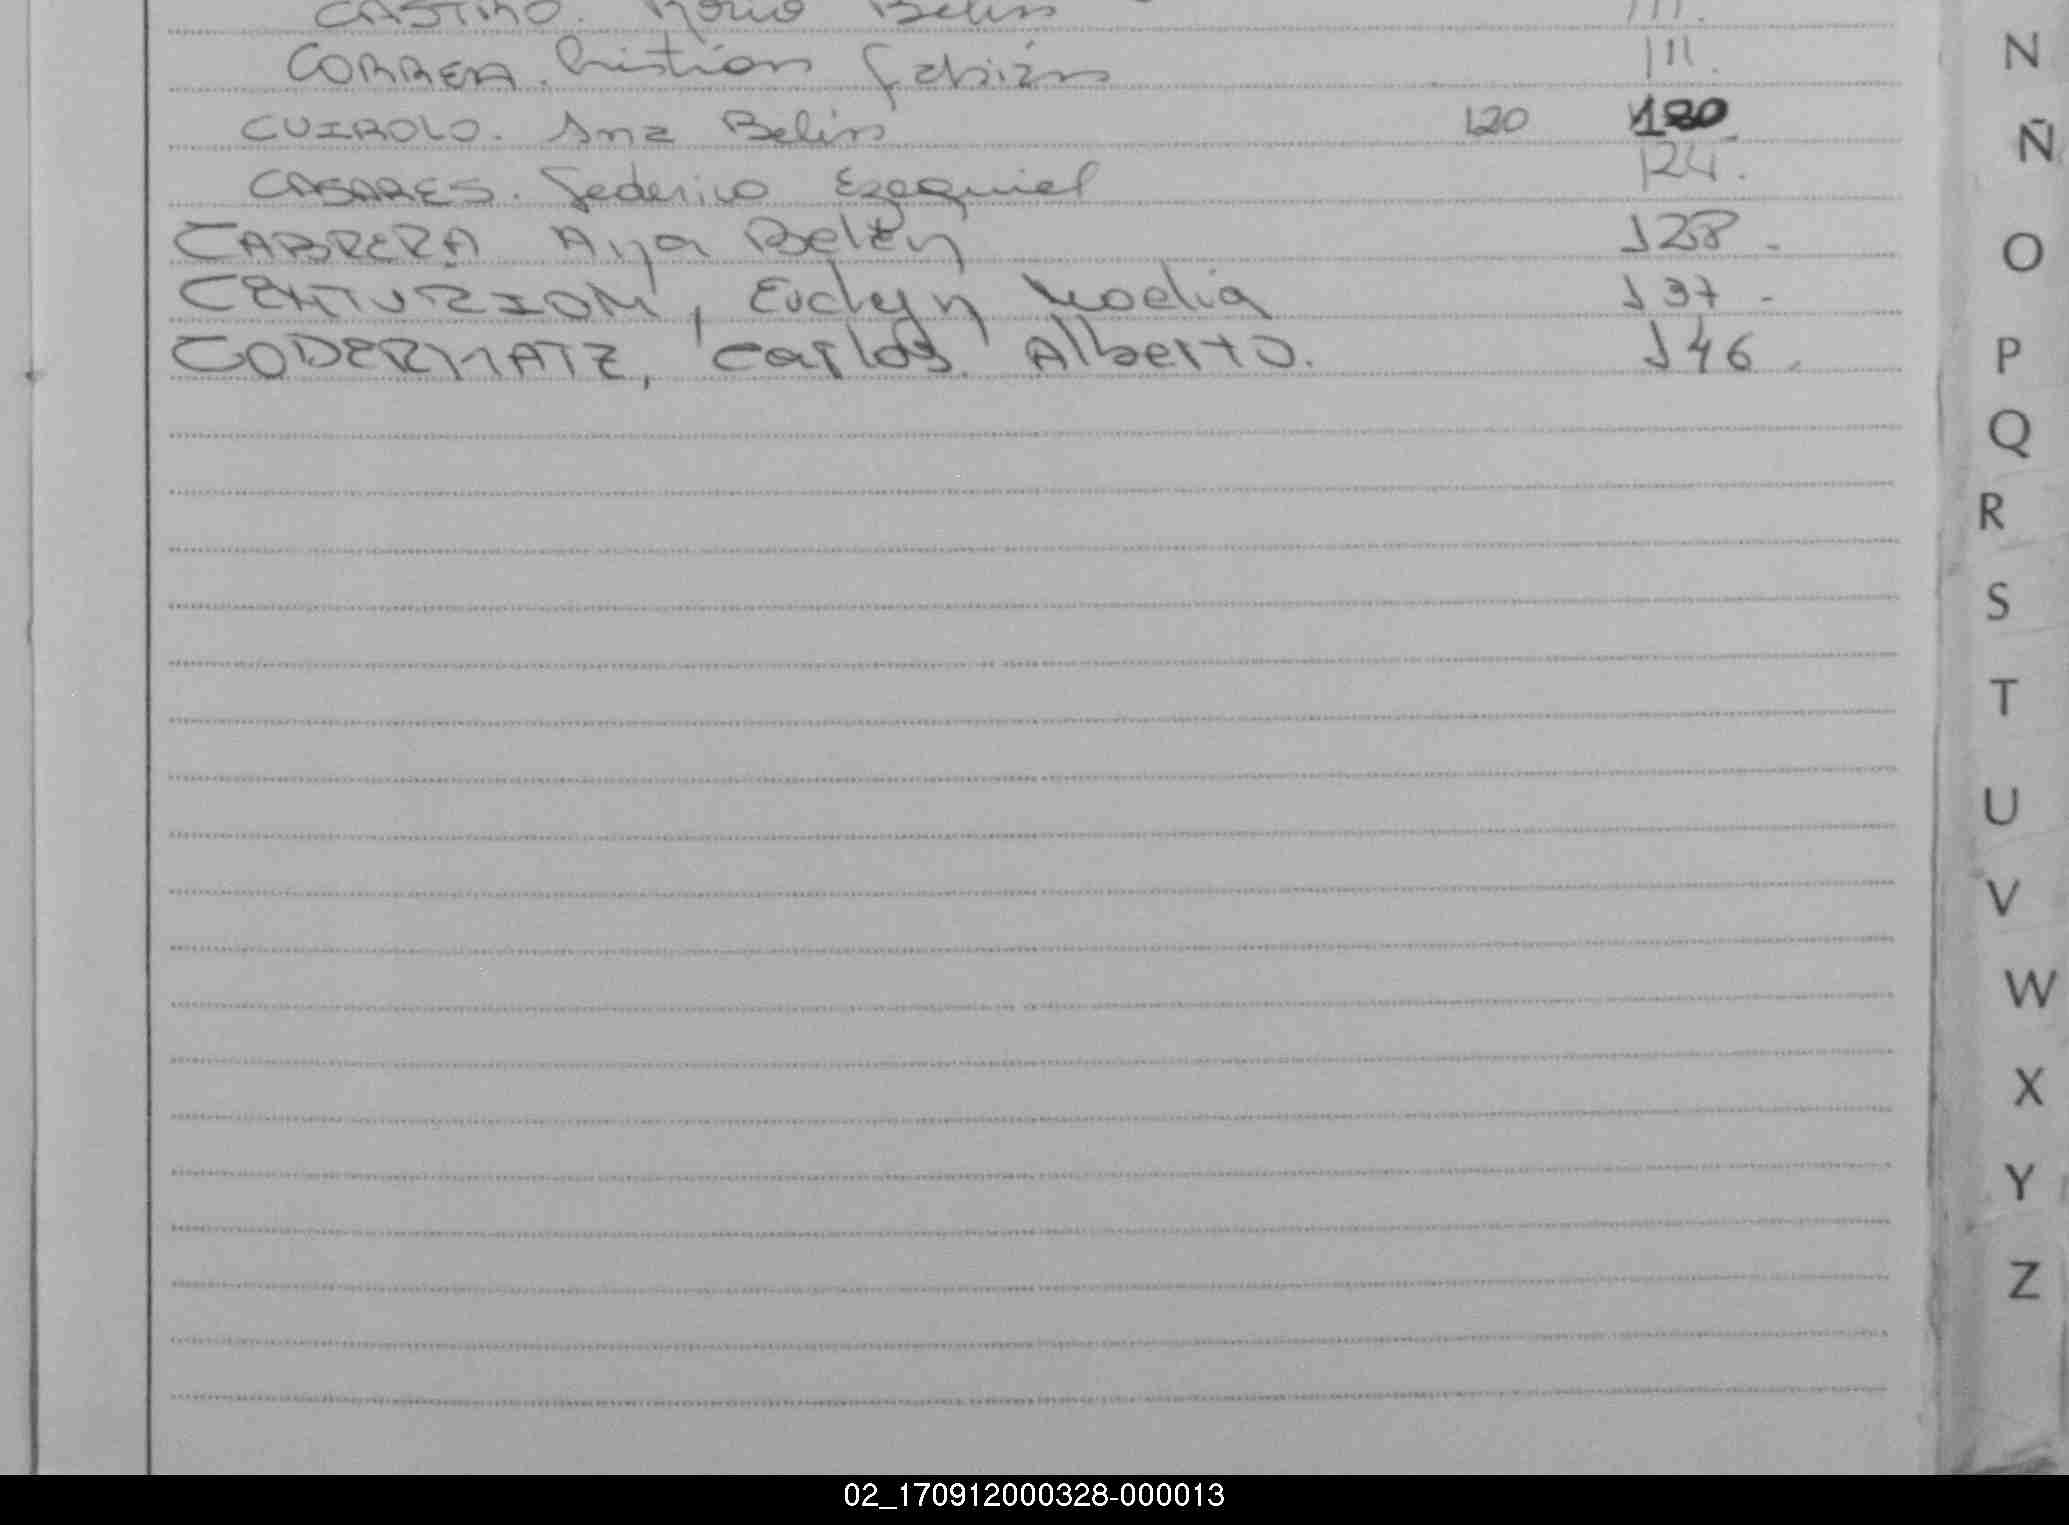 CASTIÑO. Rocio Belén 111.
CORREA. Cristián Fabián 111.
CUIROLO. Ana Belén 120 120.
CASARES. Federico Ezequiel 124.
CABRERA Ana Belén 128.
CENTURION, Evelyn Noelia 137.
CODERMATZ, Carlos Alberto. 146.
N
Ñ
O
P
Q
R
S
T
U
V
W
X
Y
Z
02_170912000328-000013